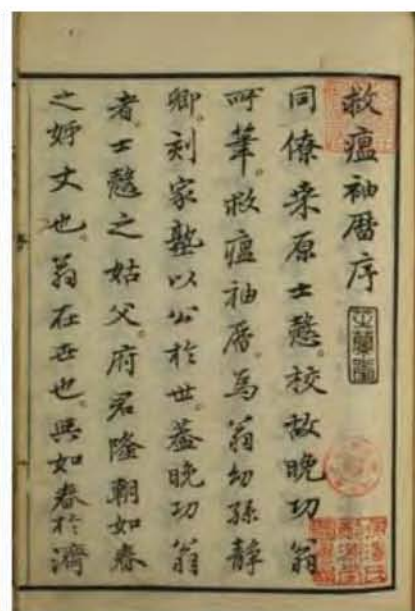 救瘟袖暦序
同僚桒原士愨。校故晩功翁
所筆。救瘟袖暦。為翁幼孫靜
卿。刻家塾以公於世。蓋晩功翁
者。士愨之姑父。府君隆朝如春
之姊丈也。翁在世也。與如春於濟